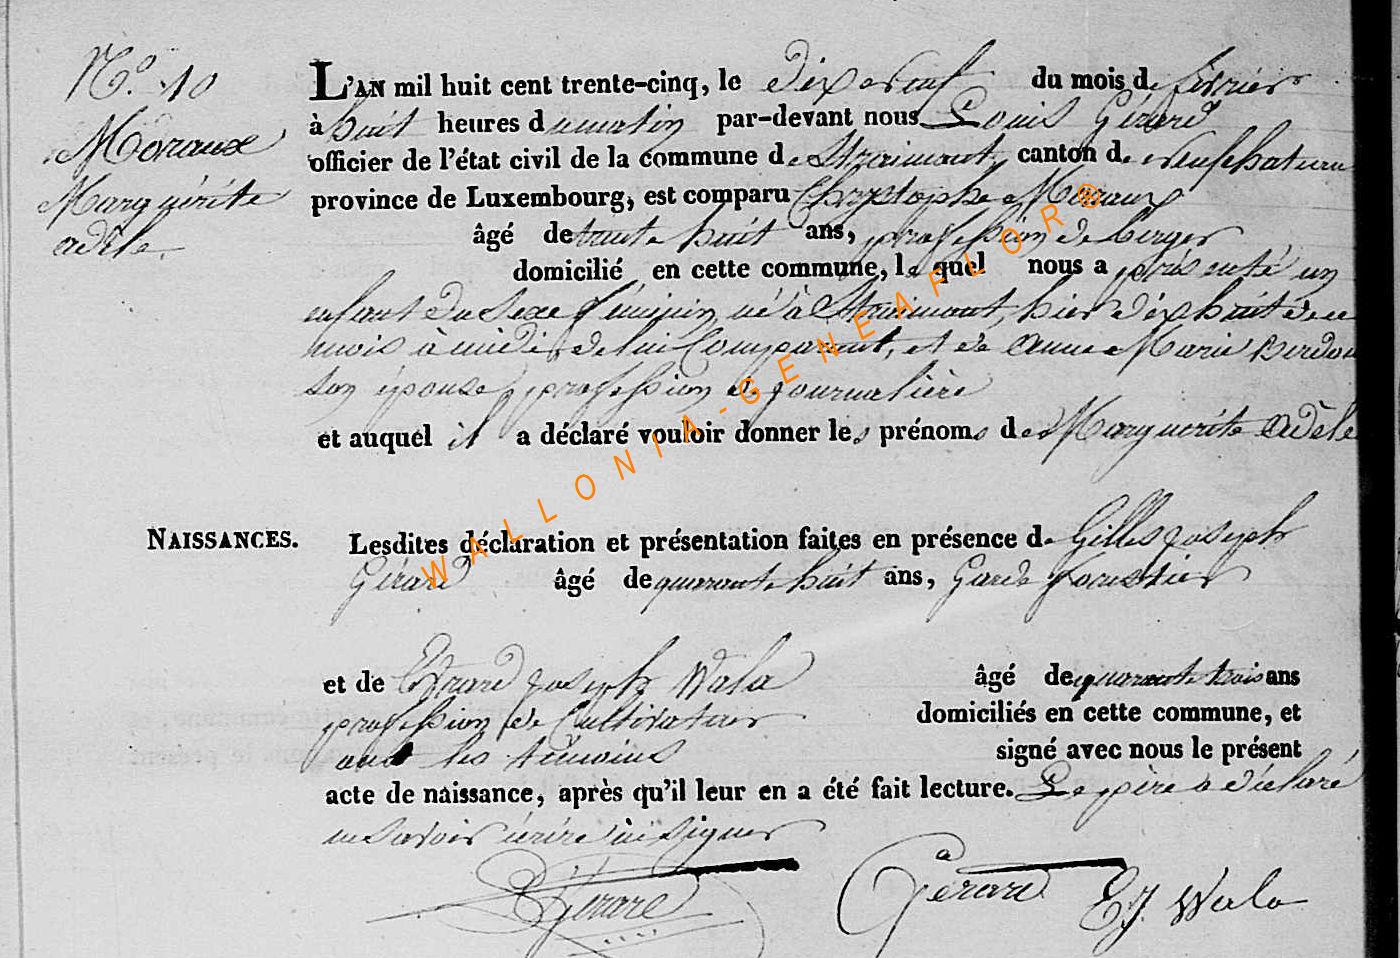 N.o 10
Moraux
Marguérite
adèle.
L'AN mil huit cent trente-cinq, le dix neuf du mois de février
à huit heures du matin par-devant nous Louis Gérard
officier de l'état civil de la commune de Straimont, canton de neufchateau
province de Luxembourg, est comparu Chrystophe Moraux
âgé de trente huit ans, profession de berger
domicilié en cette commune, le quel nous a présenté un
enfant du sexe féminin, né à Straimont, hier dix huit de ce
mois à midi, de lui Comparant, et de Anne Marie
son épouse, profession de journalière
et auquel il a déclaré vouloir donner les prénoms de Marguérite Adèle
NAISSANCES.
Lesdites déclaration et présentation faites en présence de Gilles joseph
Gérard âgé de quarante huit ans, Garde forestier
et de Evrard joseph Wala âgé de quarante trois ans
profession de Cultivateur domiciliés en cette commune, et
ont les témoins signé avec nous le présent
acte de naissance, après qu'il leur en a été fait lecture. Le père a déclaré
ne savoir écrire ni signer
Gérard Gérard EJ. Wala
WALLONIA-GENEAFLOR®